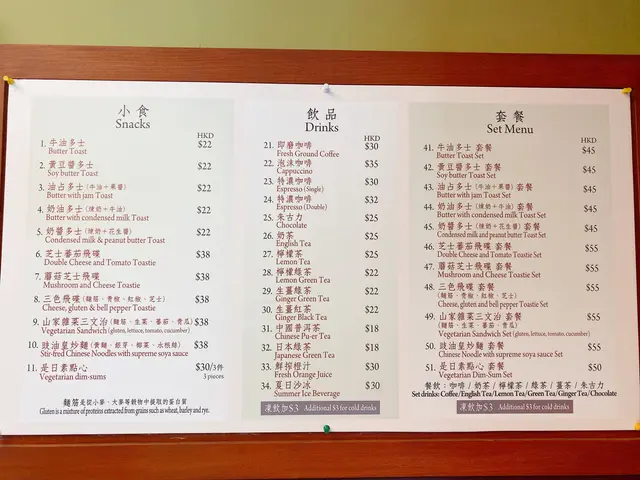 小食
Snacks
HKD
1. 牛油多士 $22
Butter Toast
2. 黃豆醬多士 $22
Soy butter Toast
3. 油占多士 (牛油+果醬) $22
Butter with jam Toast
4. 奶油多士 (煉奶+牛油) $22
Butter with condensed milk Toast
5. 奶醬多士 (煉奶+花生醬) $22
Condensed milk & peanut butter Toast
6. 芝士蕃茄飛碟 $38
Double Cheese and Tomato Toastie
7. 蘑菇芝士飛碟 $38
Mushroom and Cheese Toastie
8. 三色飛碟 (麵筋、青椒、紅椒、芝士) $38
Cheese, gluten & bell pepper Toastie
9. 山家雜菜三文治 (麵筋、生菜、蕃茄、青瓜) $38
Vegetarian Sandwich (gluten, lettuce, tomato, cucumber)
10. 豉油皇炒麵 (黃麵、銀芽、椰菜、水根絲) $38
Stir-fred Chinese Noodles with supreme soya sauce
11. 是日素點心 $30/3件
Vegetarian dim-sums 3 pieces
麵筋是從小麥、大麥等穀物中提取的蛋白質
Gluten is a mixture of proteins extracted from grains such as wheat, barley and rye.
飲品
Drinks
HKD
21. 即磨咖啡 $30
Fresh Ground Coffee
22. 泡沫咖啡 $35
Cappuccino
23. 特濃咖啡 $30
Espresso (Single)
24. 特濃咖啡 $32
Espresso (Double)
25. 朱古力 $25
Chocolate
26. 奶茶 $25
English Tea
27. 檸檬茶 $25
Lemon Tea
28. 檸檬綠茶 $22
Lemon Green Tea
29. 生薑綠茶 $22
Ginger Green Tea
30. 生薑紅茶 $22
Ginger Black Tea
31. 中國普洱茶 $18
Chinese Pu-er Tea
32. 日本綠茶 $18
Japanese Green Tea
33. 鮮搾橙汁 $30
Fresh Orange Juice
34. 夏日沙冰 $30
Summer Ice Beverage
凍飲加$3 Additional $3 for cold drinks
套餐
Set Menu
HKD
41. 牛油多士 套餐 $45
Butter Toast Set
42. 黃豆醬多士 套餐 $45
Soy butter Toast Set
43. 油占多士 (牛油+果醬) 套餐 $45
Butter with jam Toast Set
44. 奶油多士 (煉奶+牛油) 套餐 $45
Butter with condensed milk Toast Set
45. 奶醬多士 (煉奶+花生醬) 套餐 $45
Condensed milk and peanut butter Toast Set
46. 芝士蕃茄飛碟 套餐 $55
Double Cheese and Tomato Toastie Set
47. 蘑菇芝士飛碟 套餐 $55
Mushroom and Cheese Toastie Set
48. 三色飛碟 套餐 $55
(麵筋、青椒、紅椒、芝士)
Cheese, gluten and bell pepper Toastie Set
49. 山家雜菜三文治 套餐 $55
(麵筋、生菜、蕃茄、青瓜)
Vegetarian Sandwich Set (gluten, lettuce, tomato, cucumber)
50. 豉油皇炒麵 套餐 $55
Chinese Noodle with supreme soya sauce Set
51. 是日素點心 套餐 $50
Vegetarian Dim-Sum Set
餐飲:咖啡/奶茶/檸檬茶/綠茶/薑茶/朱古力
Set drinks: Coffee/English Tea/Lemon Tea/Green Tea/Ginger Tea/Chocolate
凍飲加$3 Additional $3 for cold drinks